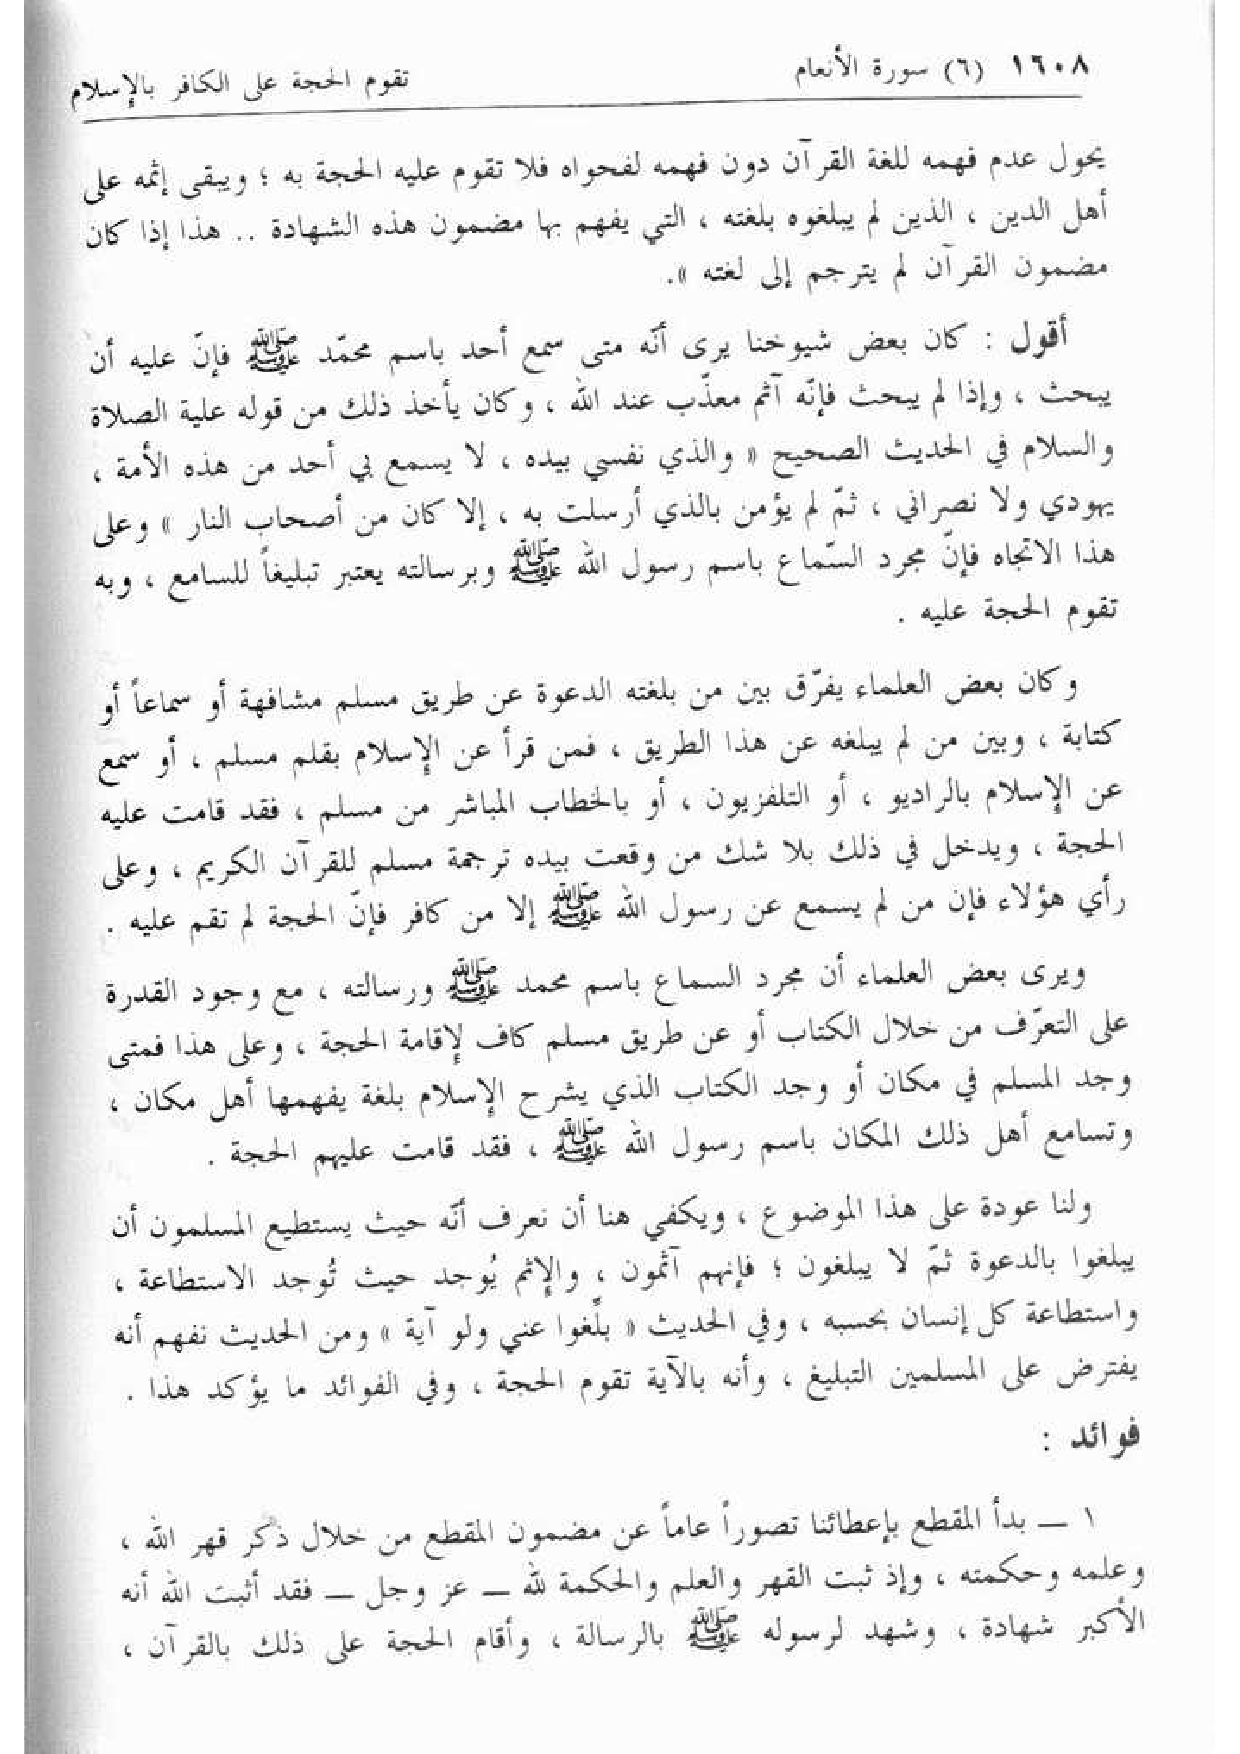 ١٦٠٨ (٦) سورة الأنعام تقوم الحجة على الكافر بالإسلام
يحول عدم فهمه للغة القرآن دون فهمه لفحواه فلا تقوم عليه الحجة به ؛ ويبقى إثمه على
أهل الدين ، الذين لم يبلغوه بلغته ، التي يفهم بها مضمون هذه الشهادة .. هذا إذا كان
مضمون القرآن لم يترجم إلى لغته » .
أقول : كان بعض شيوخنا يرى أنّه متى سمع أحد باسم محمّد ﷺ فإنّ عليه أن
يبحث ، وإذا لم يبحث فإنّه آثم معذّب عند الله ، وكان يأخذ ذلك من قوله علية الصلاة
والسلام في الحديث الصحيح « والذي نفسي بيده ، لا يسمع بي أحد من هذه الأمة ،
يهودي ولا نصراني ، ثمّ لم يؤمن بالذي أرسلت به ، إلا كان من أصحاب النار » وعلى
هذا الاتجاه فإنّ مجرد السّماع باسم رسول الله ﷺ وبرسالته يعتبر تبليغاً للسامع ، وبه
تقوم الحجة عليه .
وكان بعض العلماء يفرّق بين من بلغته الدعوة عن طريق مسلم مشافهة أو سماعاً أو
كتابة ، وبين من لم يبلغه عن هذا الطريق ، فمن قرأ عن الإسلام بقلم مسلم ، أو سمع
عن الإسلام بالراديو ، أو التلفزيون ، أو بالخطاب المباشر من مسلم ، فقد قامت عليه
الحجة ، ويدخل في ذلك بلا شك من وقعت بيده ترجمة مسلم للقرآن الكريم ، وعلى
رأي هؤلاء فإن من لم يسمع عن رسول الله ﷺ إلا من كافر فإنّ الحجة لم تقم عليه .
ويرى بعض العلماء أن مجرد السماع باسم محمد ﷺ ورسالته ، مع وجود القدرة
على التعرّف من خلال الكتاب أو عن طريق مسلم كاف لإقامة الحجة ، وعلى هذا فمتى
وجد المسلم في مكان أو وجد الكتاب الذي يشرح الإسلام بلغة يفهمها أهل مكان ،
وتسامع أهل ذلك المكان باسم رسول الله ﷺ ، فقد قامت عليهم الحجة .
ولنا عودة على هذا الموضوع ، ويكفي هنا أن نعرف أنّه حيث يستطيع المسلمون أن
يبلغوا بالدعوة ثمّ لا يبلغون ؛ فإنهم آثمون ، والإثم يُوجد حيث تُوجد الاستطاعة ،
واستطاعة كل إنسان بحسبه ، وفي الحديث « بلّغوا عني ولو آية » ومن الحديث نفهم أنه
يفترض على المسلمين التبليغ ، وأنه بالآية تقوم الحجة ، وفي الفوائد ما يؤكد هذا .
فوائد :
١ ــ بدأ المقطع بإعطائنا تصوراً عاماً عن مضمون المقطع من خلال ذكر قهر الله ،
وعلمه وحكمته ، وإذ ثبت القهر والعلم والحكمة لله ــ عز وجل ــ فقد أثبت الله أنه
الأكبر شهادة ، وشهد لرسوله ﷺ بالرسالة ، وأقام الحجة على ذلك بالقرآن ،